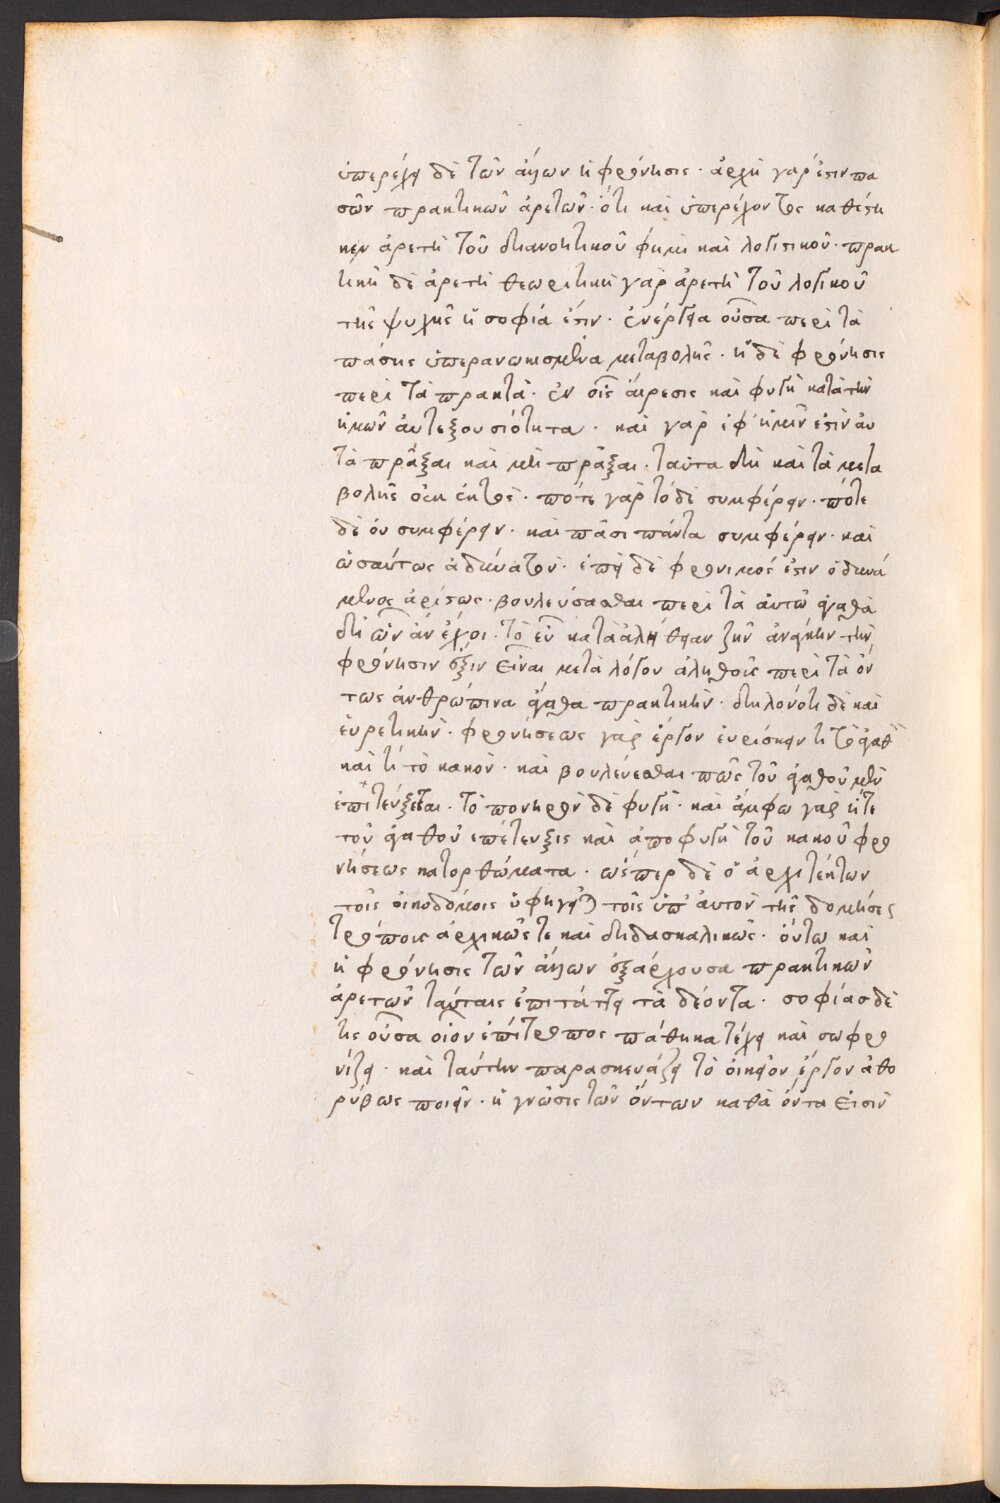 ὑπερέχει δὲ τῶν ἄλλων ἡ φρόνησις · ἀρχὴ γάρ ἐστιν πα
σῶν πρακτικῶν ἀρετῶν · ὅτι καὶ ὑπερέχοντος καθέστη
κεν ἀρετὴ τοῦ διανοητικοῦ φημὶ καὶ λογιστικοῦ · πρακ
τικὴ δὲ ἀρετὴ θεωρητικὴ γὰρ ἀρετὴ τοῦ λογικοῦ
τῆς ψυχῆς ἡ σοφία ἐστιν · ἐνέργεια οὖσα περὶ τὰ
πάσης ὑπερανωκισμένα μεταβολῆς · ἡ δὲ φρόνησις
περὶ τὰ πρακτὰ · ἐν οἷς αἵρεσις καὶ φυγὴ κατὰ τὴν
ἡμῶν αὐτεξουσιότητα · καὶ γὰρ ἐφ ἡμῖν ἐστὶν αὐ
τὰ πρᾶξαι καὶ μὴ πρᾶξαι · ταῦτα δὴ καὶ τὰ μετα
βολῆς οὐκ ἐκτὸς · πότε γὰρ τόδε συμφέρειν · πότε
δὲ οὐ συμφέρειν · καὶ πᾶσι πάντα συμφέρειν · καὶ
ὡσαύτως ἀδύνατον · ἐπεὶ δὲ φρόνιμος ἐστιν ὁ δυνά
μενος ἀρίστως · βουλεύσασθαι περὶ τὰ αὐτῶ ἀγαθὰ
δι ὧν ἂν ἔχοι · τὸ εὖ κατὰ ἀλήθειαν ζῆν ἀνάγκην τὴν
φρόνησιν ἕξιν εἶναι μετὰ λόγον ἀληθοῦς περὶ τὰ ὄν
τως ἀνθρώπινα ἀγαθα πρακτικὴν · δηλονότι δὲ καὶ
εὑρετικὴν · φρονήσεως γὰρ ἔργον εὑρίσκειν τί τὸ ἀγαθὸν
καὶ τί τὸ κακὸν · καὶ βουλεύεσθαι πῶς τοῦ ἀγαθοῦ μὲν
ἐπιτεύξεται · τὸ πονηρὸν δὲ φυγῆ · καὶ ἄμφω γὰρ ἥτε
τοῦ ἀγαθοῦ ἐπέτευξις καὶ ἀποφυγὴ τοῦ κακοῦ φρο
νήσεως κατορθώματα · ὡσπερ δὲ ὁ ἀρχιτέκτων
τοῖς οἰκοδόμοις ὑφηγεῖται τοῖς ὑπ αὐτὸν τῆς δομήσεως
τρόποις ἀρχικῶς τε καὶ διδασκαλικῶς · οὕτω καὶ
ἡ φρόνησις τῶν ἄλλων ἐξάρχουσα πρακτικῶν
ἀρετῶν ταύταις ἐπιτάττει τὰ δέοντα · σοφίας δὲ
τις οὖσα οἷον ἐπίτροπος πάθη κατέχει καὶ σωφρο
νίζει · καὶ ταύτην παρασκευάζει τὸ οἰκεῖον ἔργον ἀθο
ρύβως ποιεῖν · ἡ γνῶσις τῶν ὄντων καθὰ ὄντα εἰσὶν